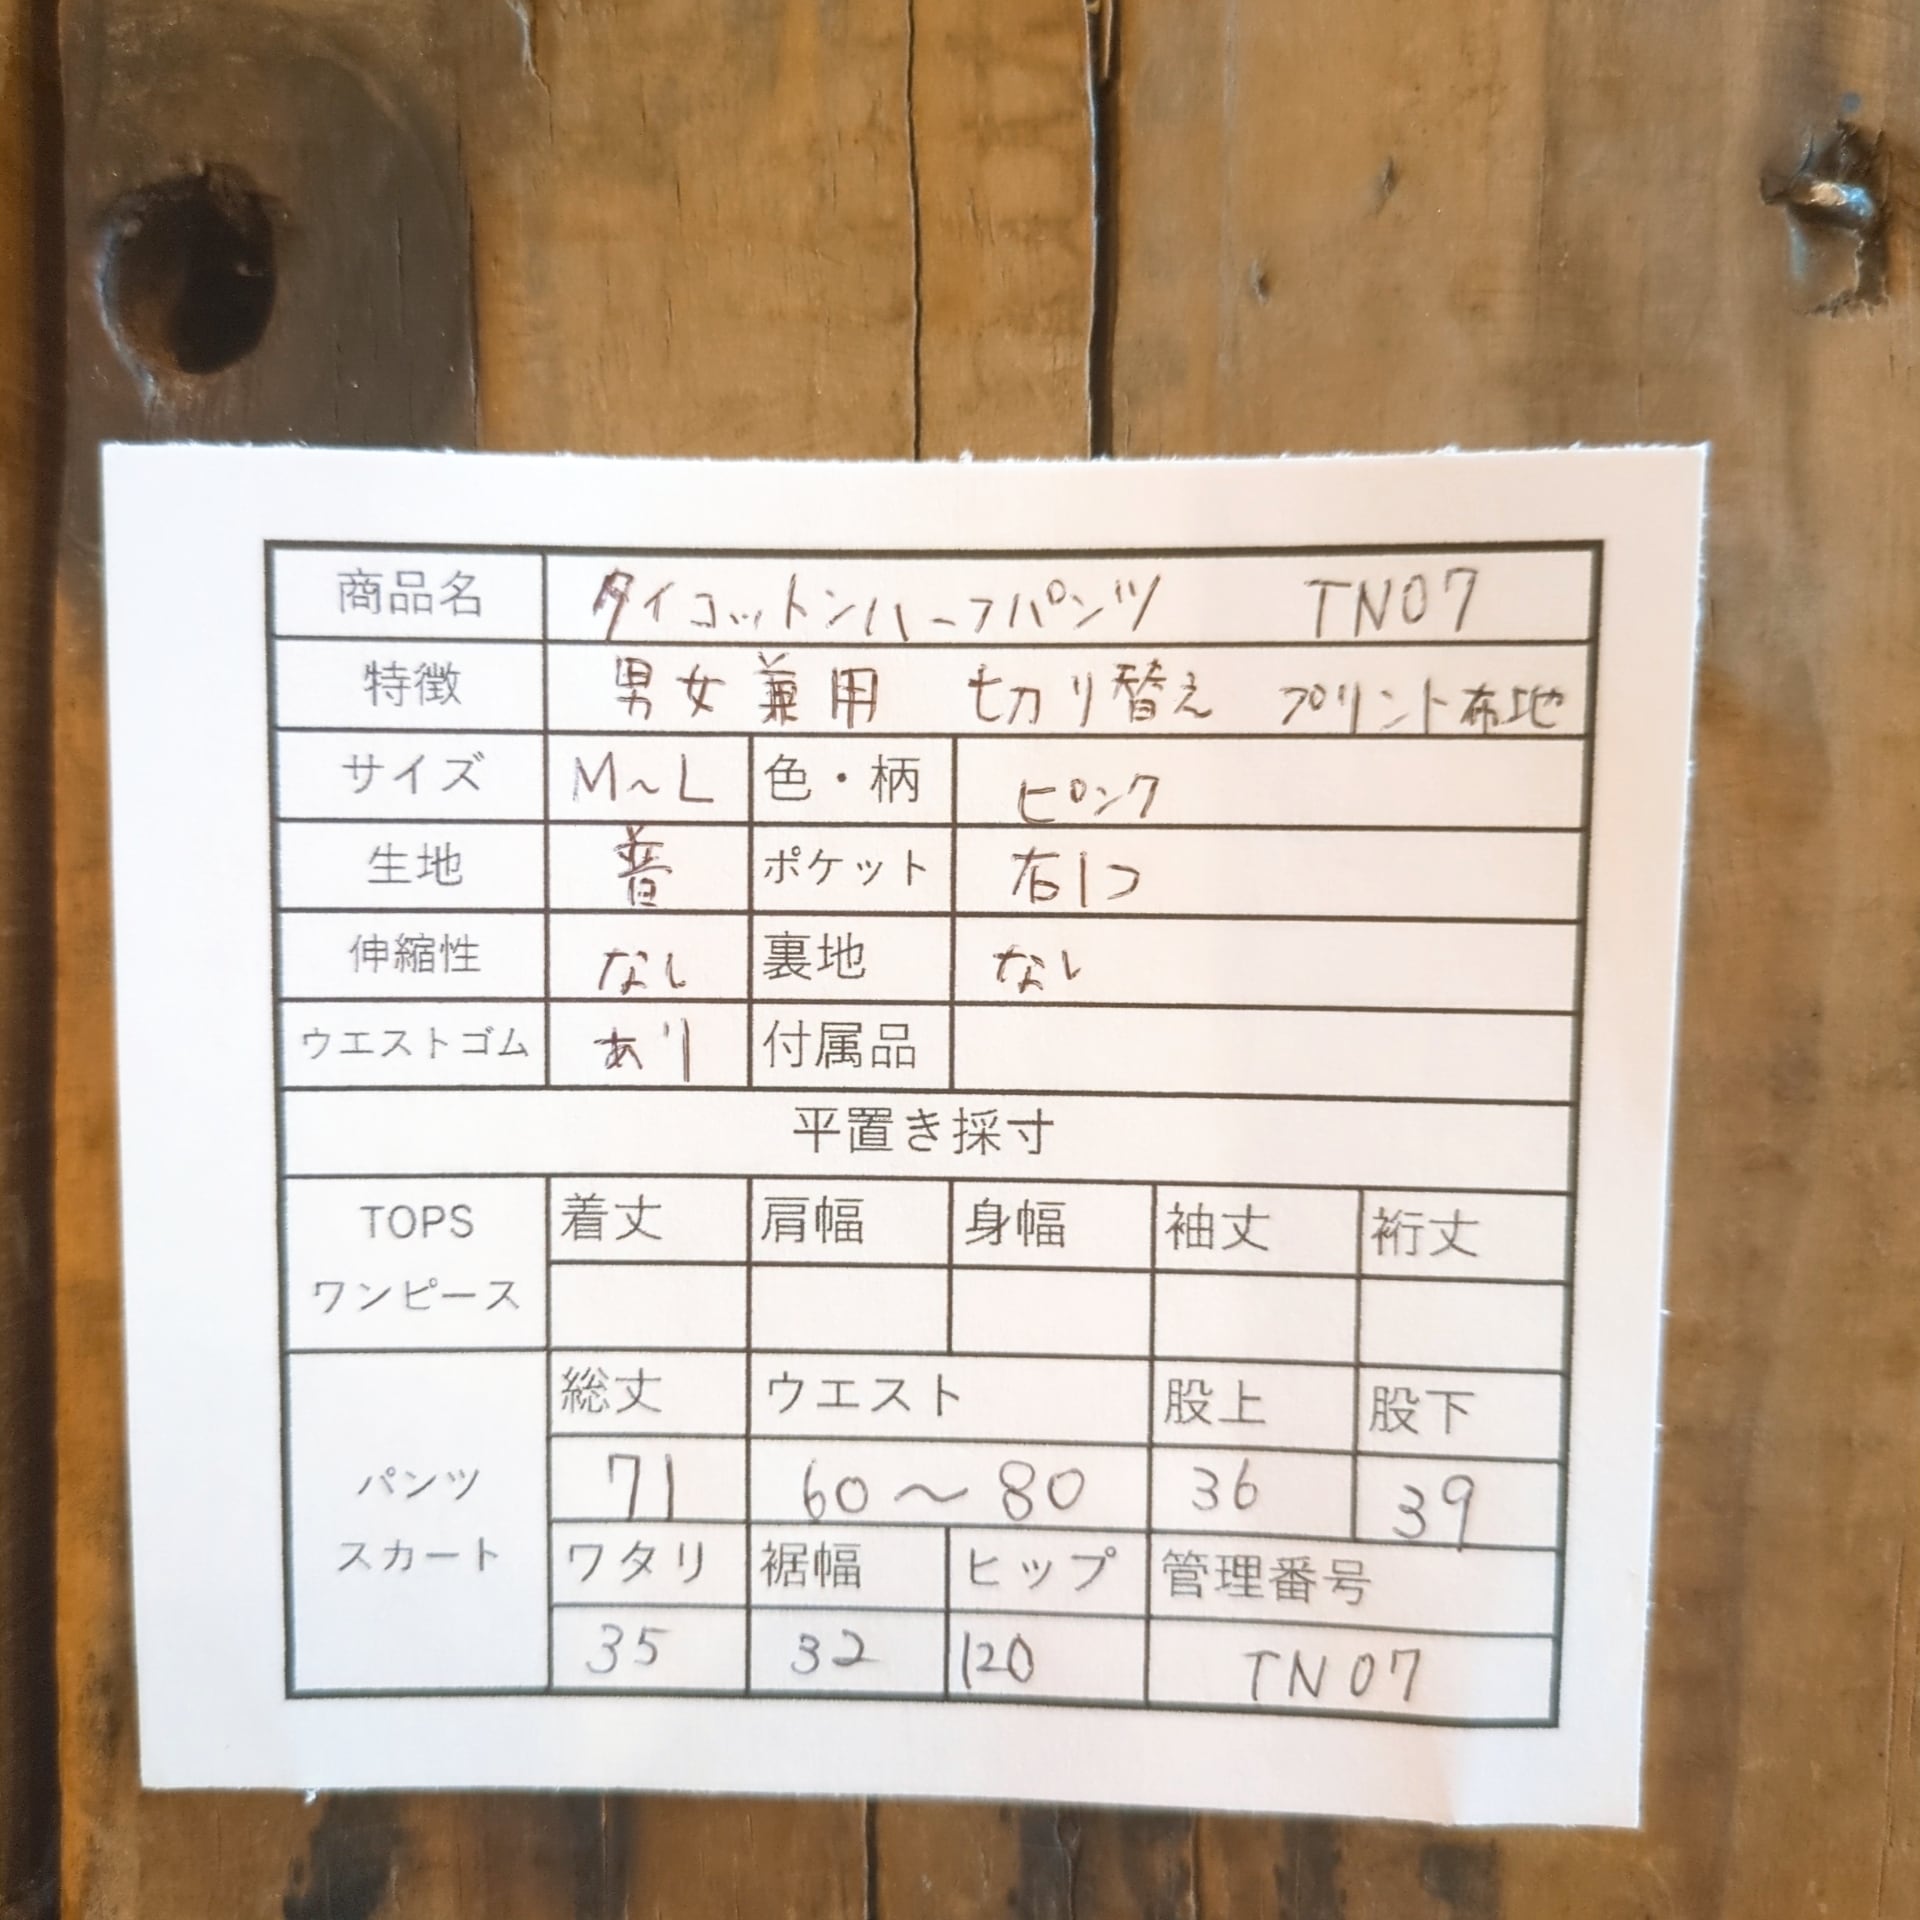 商品名 タイコットンハーフパンツ TN07
特徴 男女兼用 切り替え プリント布地
サイズ M〜L 色・柄 ピンク
生地 普 ポケット 右1つ
伸縮性 なし 裏地 なし
ウエストゴム あり 付属品
平置き採寸
TOPS ワンピース 着丈 肩幅 身幅 袖丈 裄丈
パンツ スカート 総丈 ウエスト 股上 股下
71 60〜80 36 39
ワタリ 裾幅 ヒップ 管理番号
35 32 120 TN07